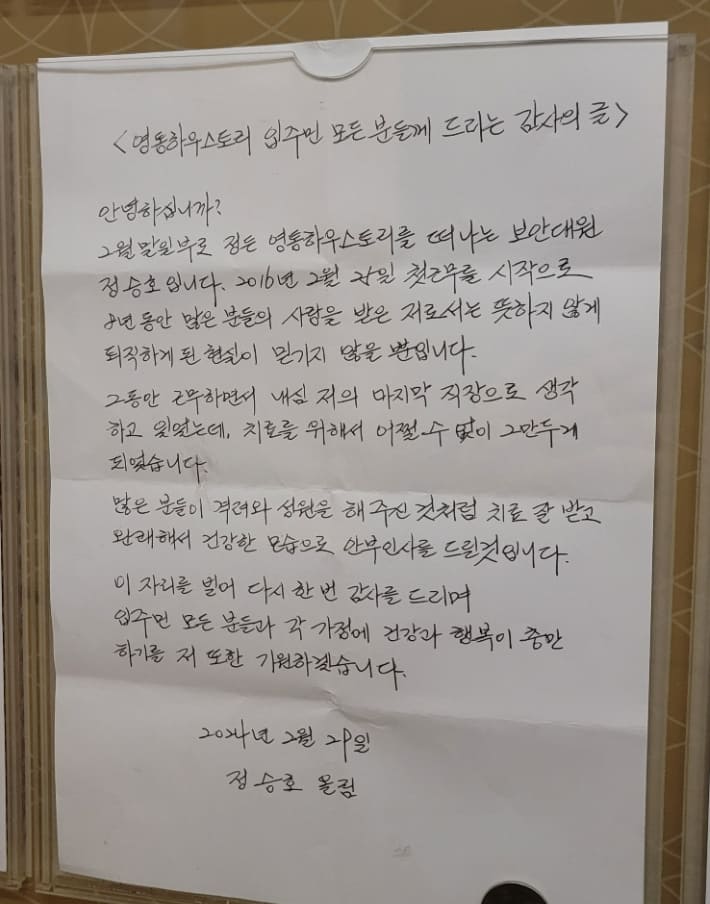 <영통하우스토리 입주민 모든 분들께 드리는 감사의 글>
안녕하십니까?
2월 말일부로 정든 영통하우스토리를 떠나는 보안대원
정승호입니다. 2016년 2월 일 첫근무를 시작으로
8년 동안 많은 분들의 사랑을 받은 저로서는 뜻하지 않게
퇴직하게 된 현실이 믿기지 않을 뿐입니다.
그동안 근무하면서 내심 저의 마지막 직장으로 생각
하고 있었는데, 치료를 위해서 어쩔 수 없이 그만두게
되었습니다.
많은 분들이 격려와 성원을 해 주신 것처럼 치료 잘 받고
완쾌해서 건강한 모습으로 안부인사를 드릴것입니다.
이 자리를 빌어 다시 한 번 감사를 드리며
입주민 모든 분들과 각 가정에 건강과 행복이 충만
하기를 저 또한 기원하겠습니다.
2024년 2월 29일
정승호 올림